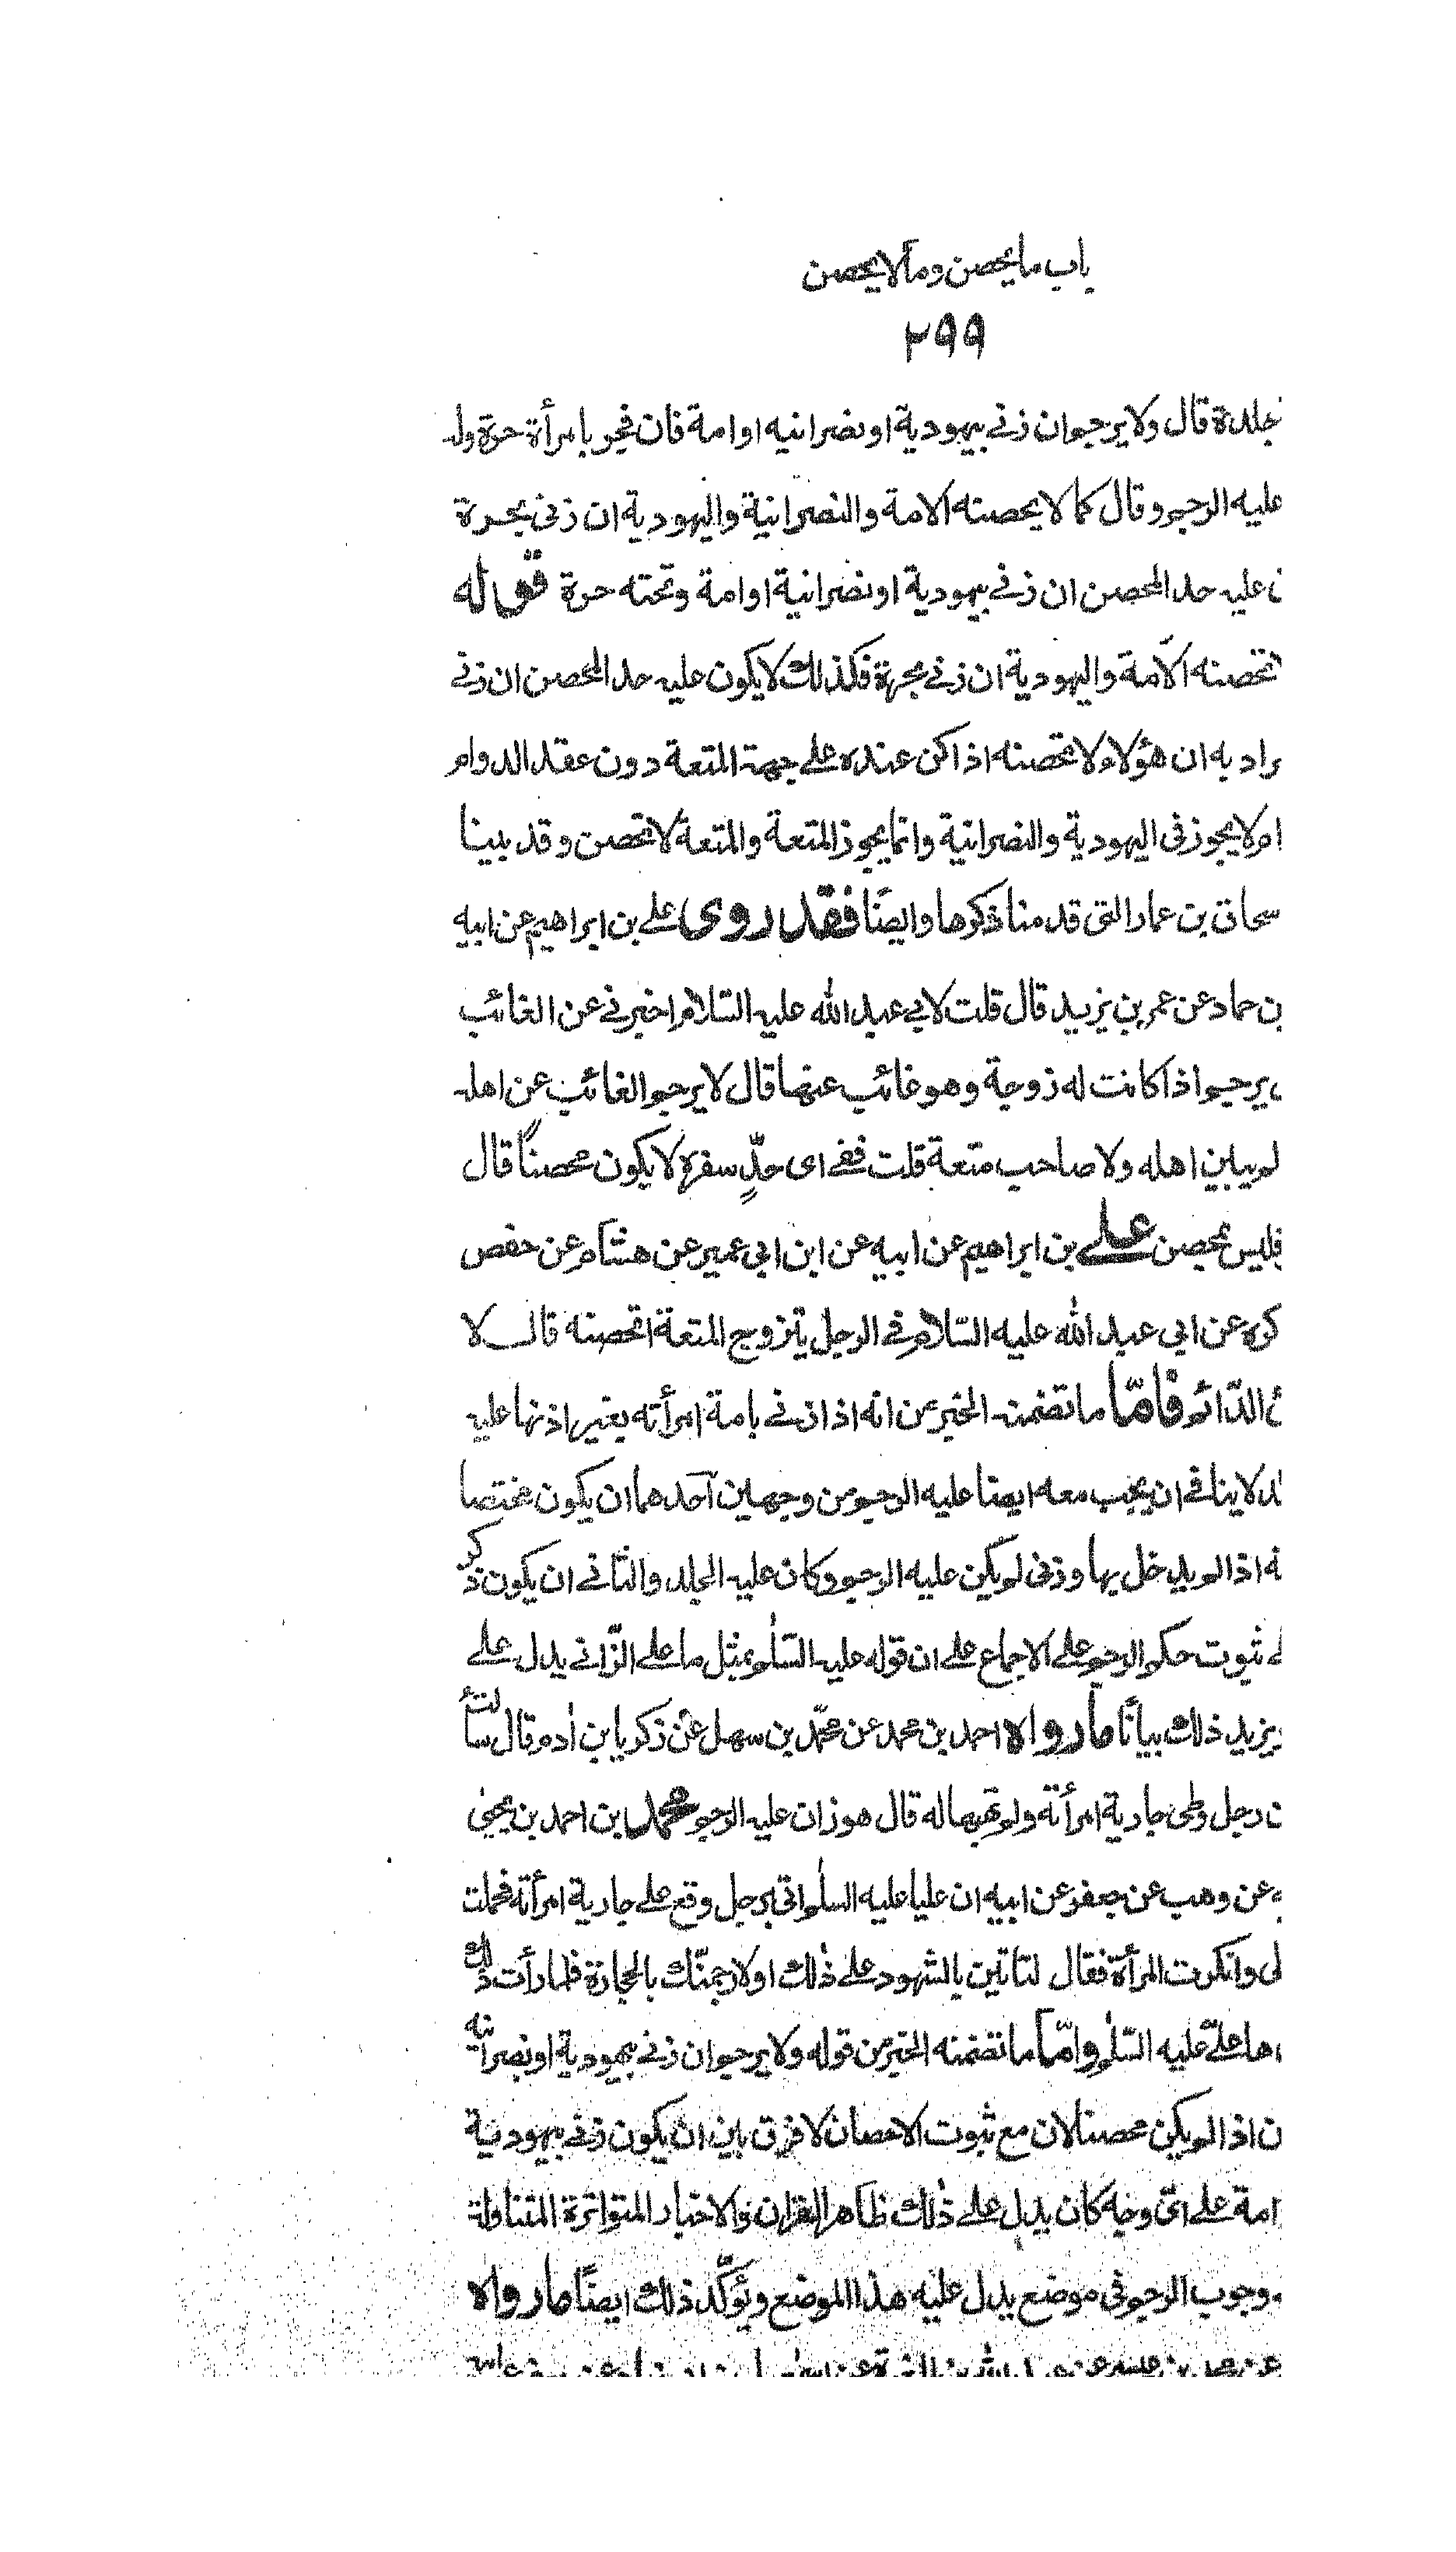 باب ما يحصن وما لا يحصن
٢٩٩
جلدة قال ولا يرجم ان زنى بيهودية او نصرانيه او امة فان فجر بامرأة حرة وله
عليه الرجم وقال كما لا يحصنه الامة والنصرانية واليهودية ان زنى بحرة
عليه حد المحصن ان زنى بيهودية او نصرانية او امة وتحته حرة قوله
تحصنه الامة واليهودية ان زنى بحرة فكذلك لا يكون عليه حد المحصن ان زنى
راد به ان هؤلاء لا تحصنه اذا كن عنده على جهة المتعة دون عقد الدوام
ام لا يجوز فى اليهودية والنصرانية وانما يجوز المتعة والمتعة لا تحصن وقد بينا
سحاق بن عمار التى قدمنا ذكرها وايضًا فقد روى على بن ابراهيم عن ابيه
بن حماد عن عمر بن يزيد قال قلت لابي عبد الله عليه السّلام اخبرني عن الغائب
يرجم اذا كانت له زوجة وهو غائب عنها قال لا يرجم الغائب عن اهله
لم يبن اهله ولا صاحب متعة قلت ففى اى حدّ سفره لا يكون محصنًا قال
فليس بمحصن على بن ابراهيم عن ابيه عن ابن ابي عمير عن هشام عن حفص
كره عن ابي عبد الله عليه السّلام فى الرجل يتزوج المتعة اتحصنه قال لا
الدّائم فامّا ما تضمنه الخبر من انه اذا زنى بامة امرأته بغير اذنها عليه
لا ينافى ان يجب معه ايضا عليه الرجم من وجهين احدهما ان يكون مختصا
نه اذا لم يدخل بها وزنى لم يكن عليه الرجم وكان عليه الجلد والثانى ان يكون ذكر
ثبوت حكم الرجم على الاجماع على ان قوله عليه السّلم بمثل ما على الزّانى يدل على
يزيد ذلك بيانًا ما رواه احمد بن محمد عن محمّد بن سهل عن زكريا بن ادم قال سألت
رجل وطى جارية امرأته ولم تهبها له قال هو زان عليه الرجم محمد بن احمد بن يحيى
عن وهب عن جعفر عن ابيه ان عليا عليه السلم اتي برجل وقع على جارية امرأته فحملت
لى وانكرت المرأة فقال لتأتين بالشهود على ذلك او لارجمنّك بالحجارة فلما رأت ذلك
ها علىّ عليه السّلم وامّا ما تضمنه الخبر من قوله ولا يرجم ان زنى بيهودية او نصرانيه
ن اذا لم يكن محصنا لان مع ثبوت الاحصان لا فرق بين ان يكون زنى بيهودية
امة على اىّ وجه كان يدل على ذلك ظاهر القران والاخبار المتواترة المتناولة
وجوب الرجم فى موضع يدل عليه هذا الموضع ويؤكّد ذلك ايضًا ما رواه